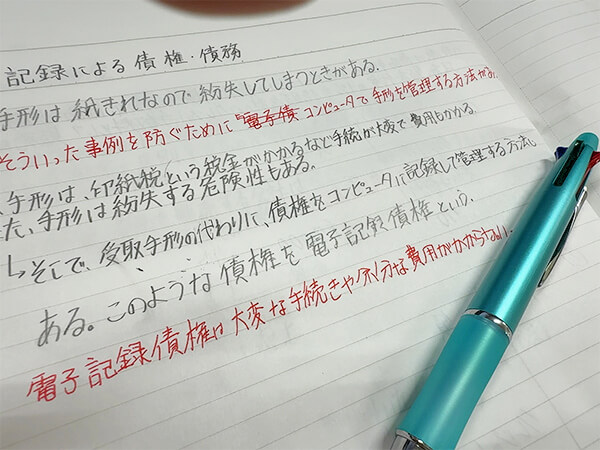 記録による債権・債務
手形は紙きれなので紛失してしまうときがある.
そういった事例を防ぐために"電子債 コンピュータで手形を管理する方法がある.
、手形は、印紙税という税金がかかるなど手続が大変で費用もかかる.
た、手形は紛失する危険性もある.
↳そこで、受取手形の代わりに、債権をコンピュータに記録して管理する方法も
ある。このような債権を電子記録債権という.
電子記録債権は大変な手続きや余分な費用がかからない.